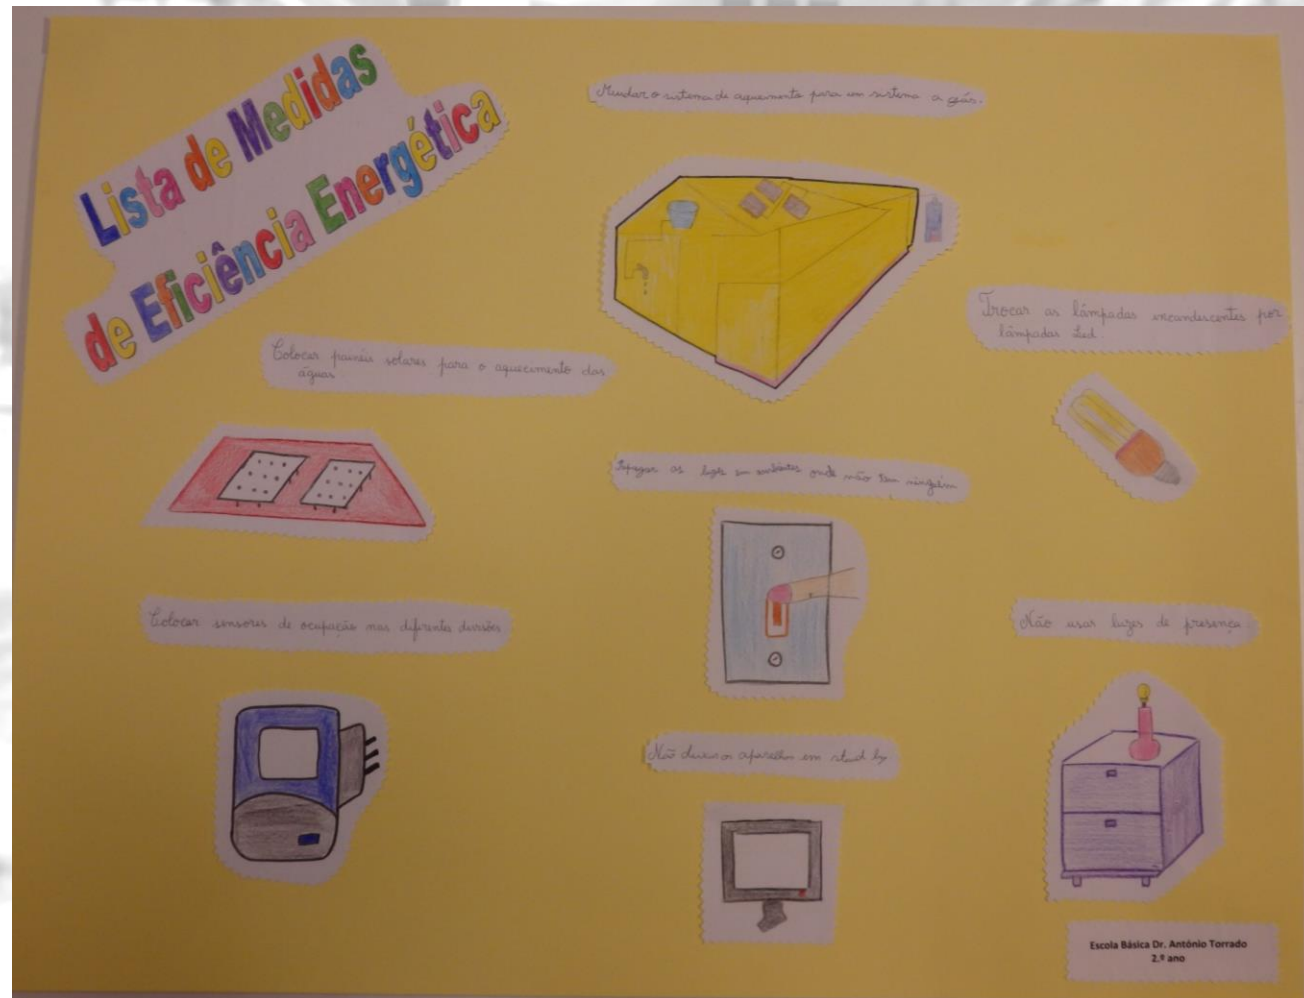 Lista de Medidas
de Eficiência Energética
Mudar o sistema de aquecimento para um sistema a gás.
Trocar as lâmpadas incandescentes por
lâmpadas Led.
Colocar painéis solares para o aquecimento das
águas
Apagar as luzes em ambientes onde não tem ninguém
Colocar sensores de ocupação nas diferentes divisões
Não usar luzes de presença.
Não deixar os aparelhos em stand by
Escola Básica Dr. António Torrado
2.º ano